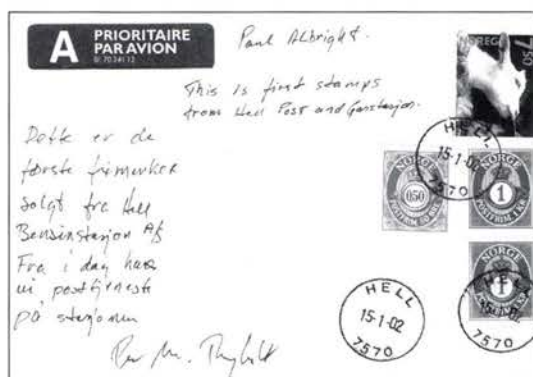 A PRIORITAIRE
PAR AVION
Bl. 70 341 12
Paul Albright.
This is first stamps
from Hell Post and
Dette er de
første frimerker
solgt fra Hell
Bensinstasjon A/S
Fra i dag har
vi posttjeneste
på stasjonen
NOREGE
750
HELL
15-1-02
7570
NORGE
050
POSTFRIM. 50 ØRE
NORGE
1
POSTFRIM. 1 KR
NORGE
1
HELL
15-1-02
7570
HELL
15-1-02
7570